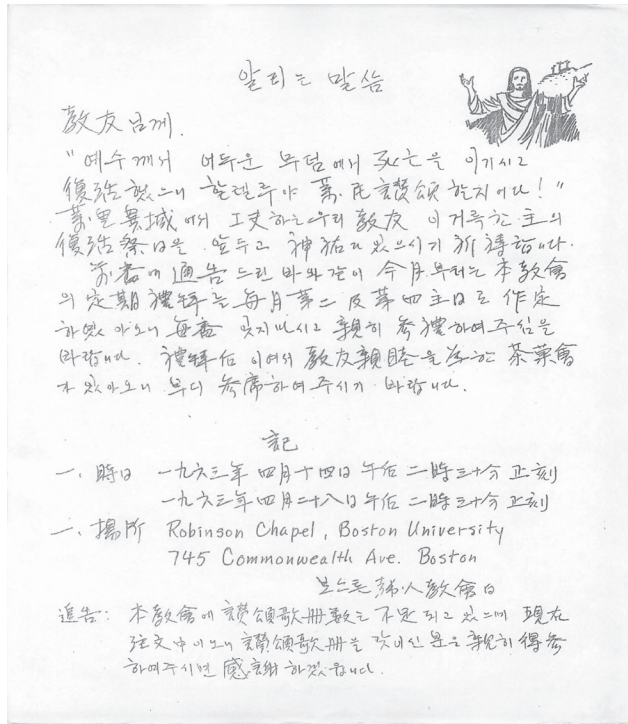 알리는 말씀
敎友님께.
"예수께서 어두운 무덤에서 死亡을 이기시고
復活했으니 할렐루야 萬民讚頌 할지어다!"
萬里異域에서 工夫하는 우리 敎友 이 거룩한 主의
復活祭日을 앞두고 神祐가 있으시기 祈禱합니다.
前番에 通告 드린 바와 같이 今月부터는 本敎會
의 定期禮拜는 每月第二 及 第四主日로 作定
하였아오니 每番 잊지마시고 親히 參禮하여 주심을
바랍니다. 禮拜后 이어서 敎友親睦을 爲한 茶菓會
가 있아오니 부디 參席하여 주시기 바랍니다.
記
一. 時日 一九六三年 四月十四日 午后 二時三十分 正刻
一九六三年 四月二十八日 午后 二時三十分 正刻
一. 場所 Robinson Chapel, Boston University
745 Commonwealth Ave. Boston
보스톤 韓人敎會 白
追告: 本敎會에 讚頌歌冊數는 不足되고 있으며 現在
注文中이오니 讚頌歌冊을 갖이신 분은 親히 得參
하여주시면 感謝하겠읍니다.